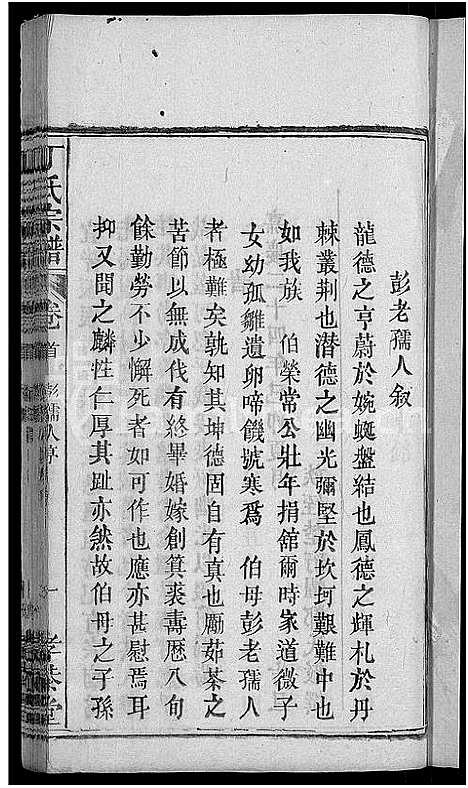 彭老孺人敘
龍德之亨蔚於婉蜒盤結也鳳德之輝札於丹
棘叢荆也潜德之幽光彌堅於坎坷艱難中也
如我族　伯榮常公壯年捐舘爾時家道微子
女幼孤雛遺卵啼饑號寒爲　伯母彭老孺人
者極難矣孰知其坤德固自有真也勵茹荼之
苦節以無成代有終畢婚嫁創箕裘壽歷八旬
餘勤勞不少懈死者如可作也應亦甚慰焉耳
抑又聞之麟性仁厚其趾亦然故伯母之子孫
丁氏宗譜　卷首　彭孺人序　一